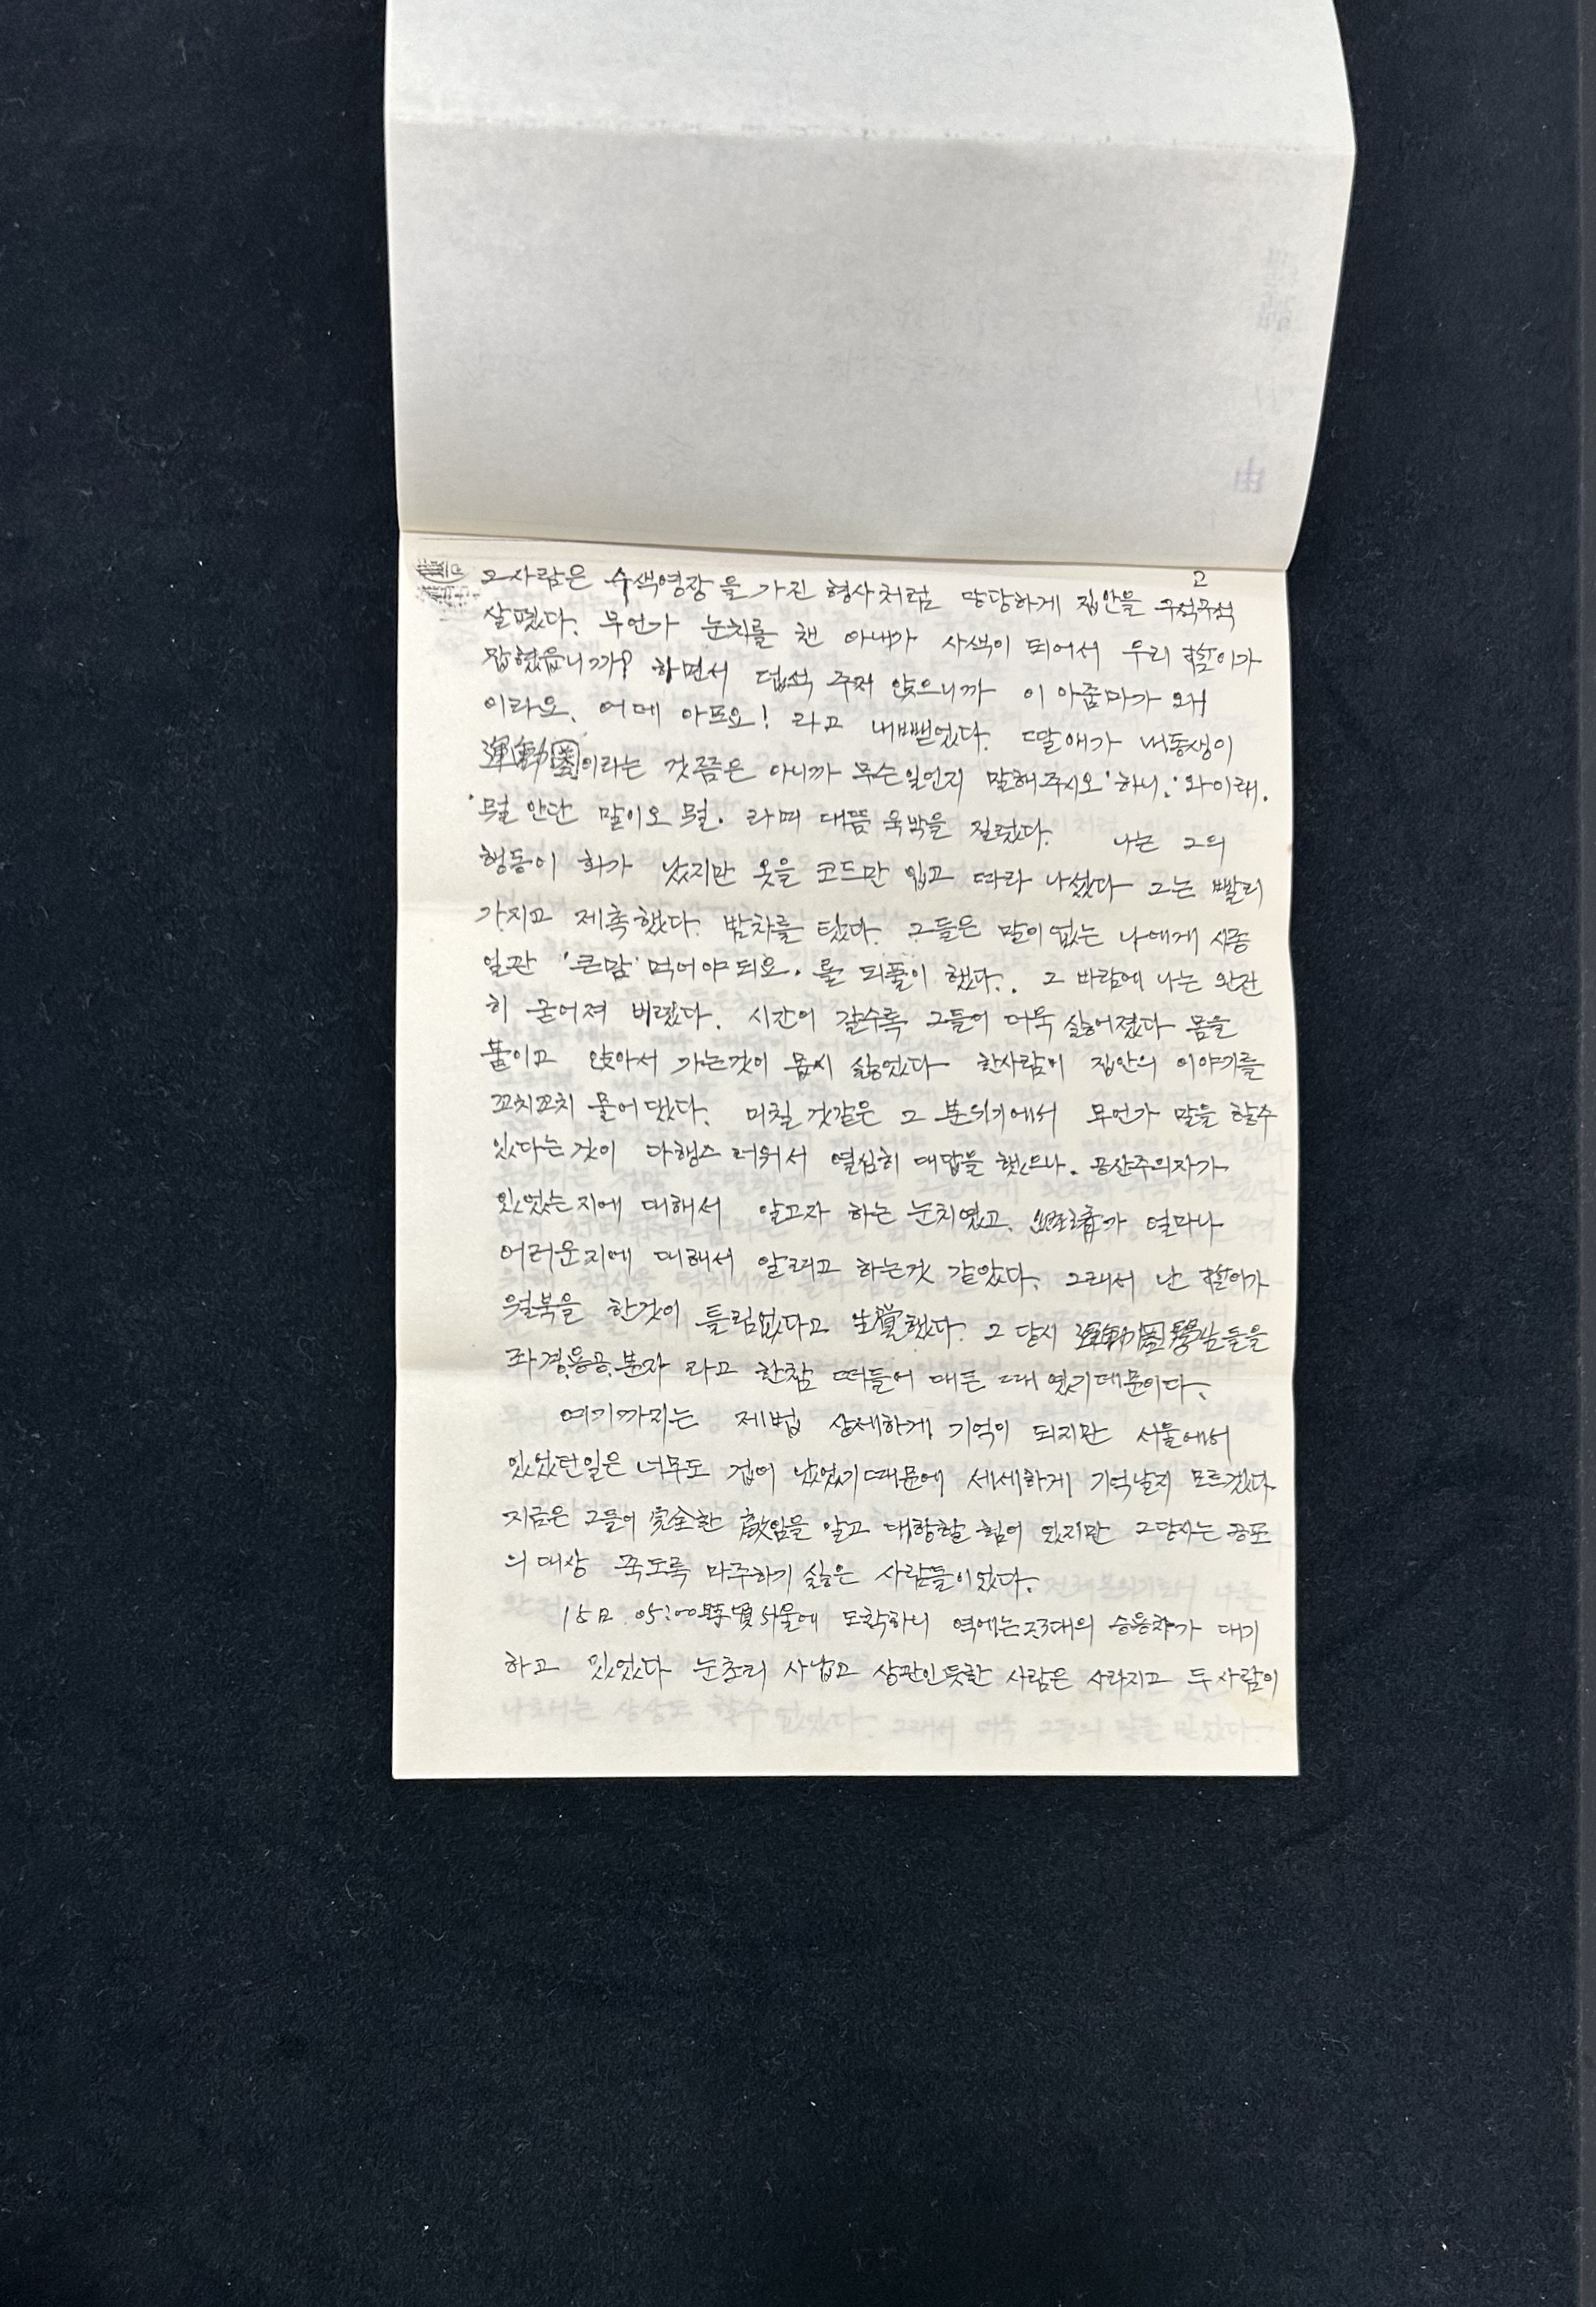 2
그 사람은 수색영장을 가진 형사처럼 당당하게 집안을 구석구석
살폈다. 무언가 눈치를 챈 아내가 사색이 되어서 우리 哲이가
잡혔읍니까? 하면서 덥석 주저 앉으니까 이 아줌마가 왜
이라요. 어메 아프요! 라고 내뱉었다. 딸애가 내동생이
運動圈이라는 것쯤은 아니까 무슨일인지 말해주시오' 하니. '와이래.
뭘 안단 말이오 뭘. 라며 대뜸 욱박을 질렀다. 나는 그의
행동이 화가 났지만 옷을 코드만 입고 따라 나섰다 그는 빨리
가지고 제촉했다. 밤차를 탔다. 그들은 말이 없는 나에게 시종
일관 '큰맘' 먹어야 되요. 를 되풀이 했다.. 그 바람에 나는 완전
히 굳어져 버렸다. 시간이 갈수록 그들이 더욱 싫어졌다 몸을
붙이고 앉아서 가는것이 몹시 싫었다 한사람이 집안의 이야기를
꼬치꼬치 물어댔다. 미칠 것같은 그 분위기에서 무언가 말을 할수
있다는 것이 다행스 러워서 열심히 대답을 했으나. 공산주의자가
있었는지에 대해서 알고자 하는 눈치였고. 가 얼마나
어려운지에 대해서 알려고 하는것 같았다. 그래서 난 哲이가
월북을 한것이 틀림없다고 生覺했다. 그 당시 運動圈 學生들을
좌경.용공.분자 라고 한참 떠들어 대든 때 였기때문이다.
여기까지는 제법 상세하게 기억이 되지만 서울에서
있었던일은 너무도 겁이 났었기때문에 세세하게 기억날지 모르겠다
지금은 그들이 完全한 敵임을 알고 대항할 힘이 있지만 그당시는 공포
의 대상 죽도록 마주하기 싫은 사람들이었다.
15日. 05:00 서울에 도착하니 역에는 2~3대의 승용차가 대기
하고 있었다 눈초리 사납고 상관인듯한 사람은 사라지고 두 사람이